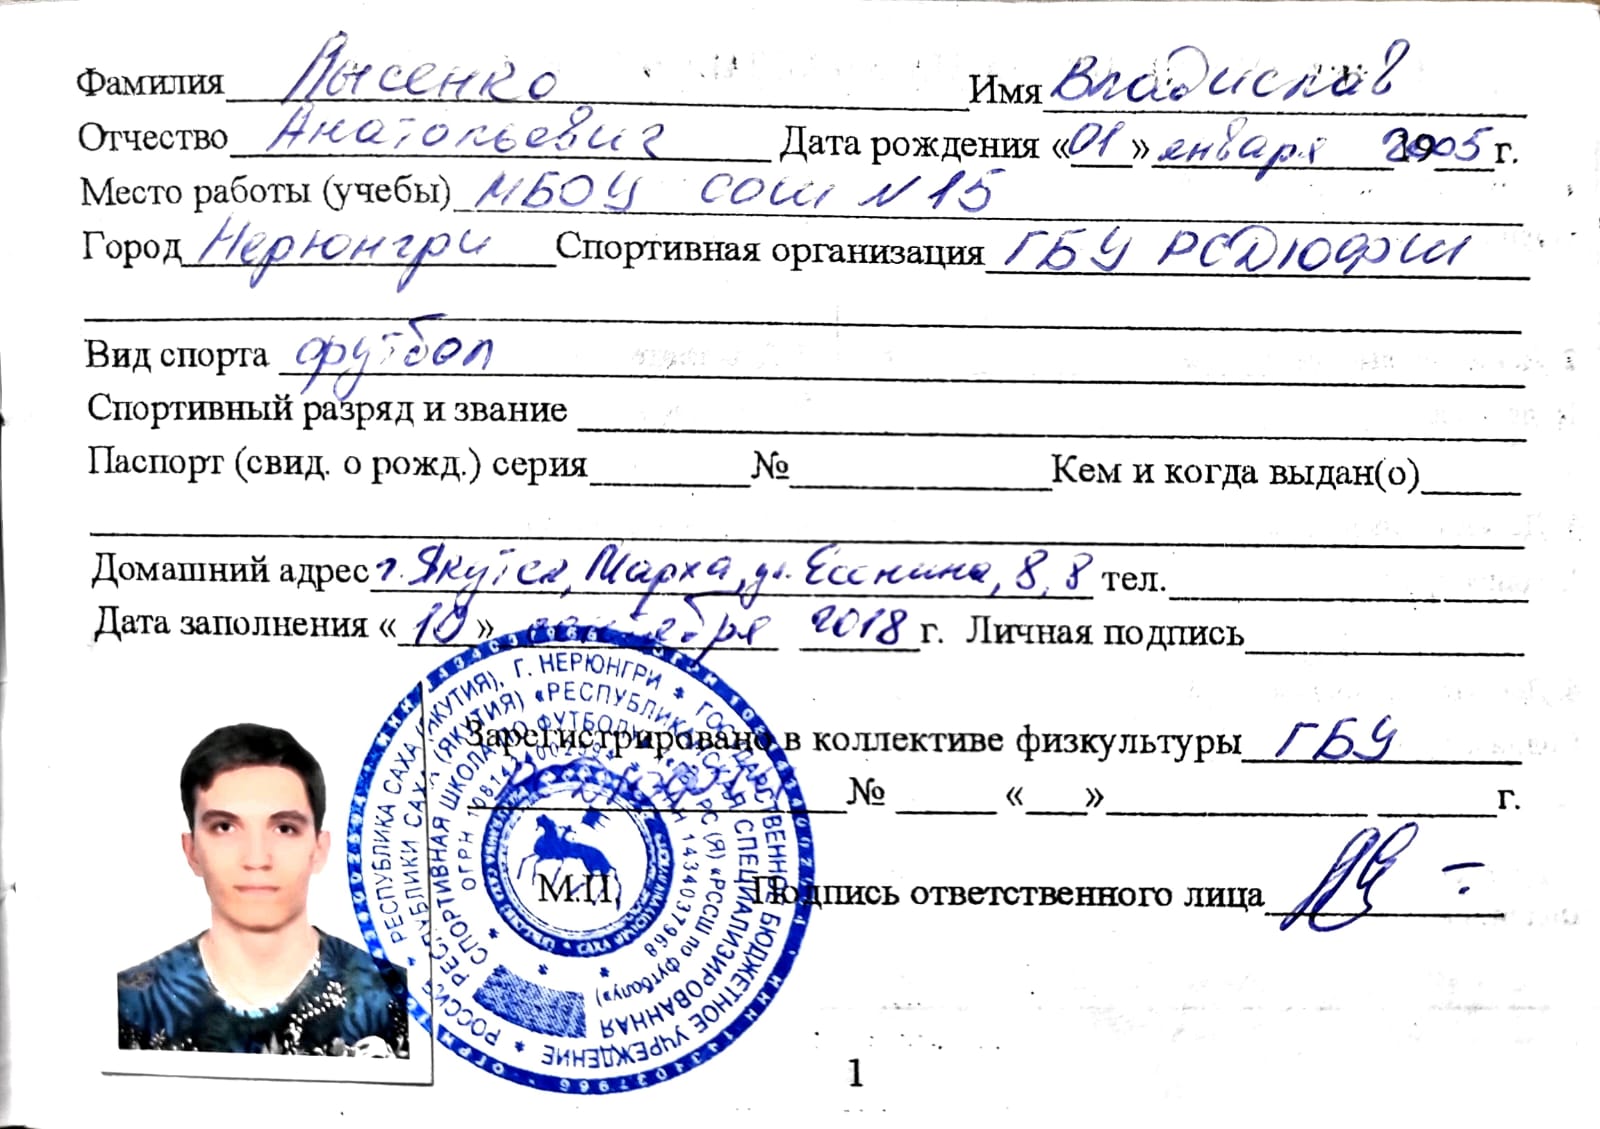 Фамилия Лысенко Имя Владислав
Отчество Анатольевич Дата рождения «01» января 2005 г.
Место работы (учебы) МБОУ СОШ N 15
Город Нерюнгри Спортивная организация ГБУ РСДЮФШ
Вид спорта футбол
Спортивный разряд и звание
Паспорт (свид. о рожд.) серия № Кем и когда выдан(о)
Домашний адрес г. Якутск, Марха, ул. Есенина, 8, 8 тел.
Дата заполнения «10» сентября 2018 г. Личная подпись
Зарегистрировано в коллективе физкультуры ГБУ
№ « » г.
М.П. Подпись ответственного лица
РЕСПУБЛИКА САХА (ЯКУТИЯ), Г. НЕРЮНГРИ * ГОСУДАРСТВЕННОЕ БЮДЖЕТНОЕ УЧРЕЖДЕНИЕ
РЕСПУБЛИКИ САХА (ЯКУТИЯ) «РЕСПУБЛИКАНСКАЯ СПЕЦИАЛИЗИРОВАННАЯ
СПОРТИВНАЯ ШКОЛА ПО ФУТБОЛУ»
РС (Я) «РССШ по футболу»)
ИНН 1434037968
1